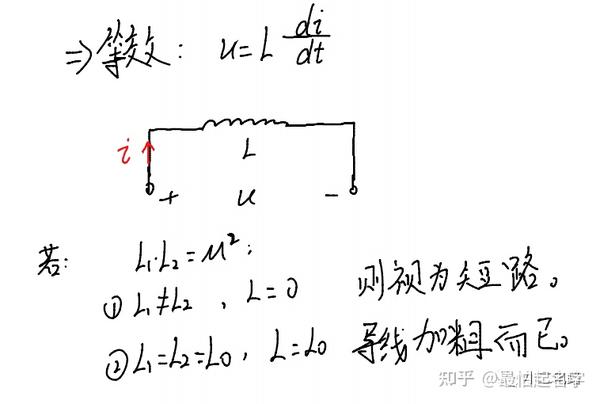 ⇒等效: u=L di/dt
i
L
+ u -
若: L₁·L₂=M²:
① L₁≠L₂, L=0 则视为短路。
② L₁=L₂=L₀, L=L₀ 导线加粗而已。
知乎 @最怕起名字